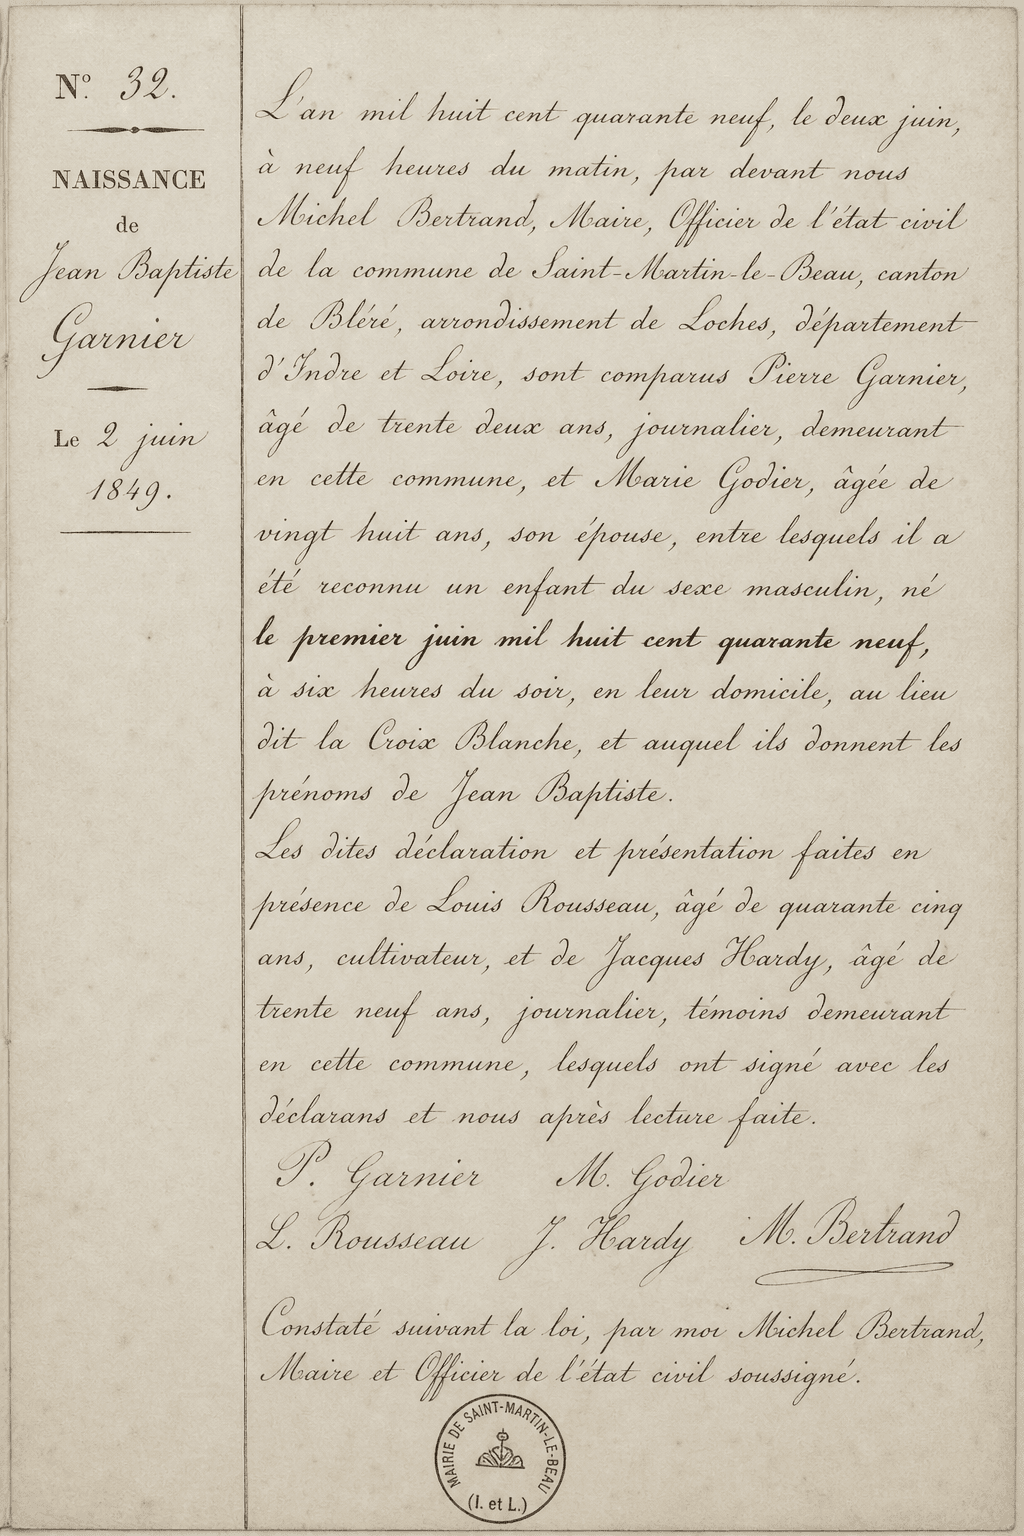 Nº. 32.
NAISSANCE
de
Jean Baptiste
Garnier
Le 2 juin
1849.
L'an mil huit cent quarante neuf, le deux juin,
à neuf heures du matin, par devant nous
Michel Bertrand, Maire, Officier de l'état civil
de la commune de Saint-Martin-le-Beau, canton
de Bléré, arrondissement de Loches, département
d'Indre et Loire, sont comparus Pierre Garnier,
âgé de trente deux ans, journalier, demeurant
en cette commune, et Marie Godier, âgée de
vingt huit ans, son épouse, entre lesquels il a
été reconnu un enfant du sexe masculin, né
le premier juin mil huit cent quarante neuf,
à six heures du soir, en leur domicile, au lieu
dit la Croix Blanche, et auquel ils donnent les
prénoms de Jean Baptiste.
Les dites déclaration et présentation faites en
présence de Louis Rousseau, âgé de quarante cinq
ans, cultivateur, et de Jacques Hardy, âgé de
trente neuf ans, journalier, témoins demeurant
en cette commune, lesquels ont signé avec les
déclarans et nous après lecture faite.
P. Garnier M. Godier
L. Rousseau J. Hardy M. Bertrand
Constaté suivant la loi, par moi Michel Bertrand,
Maire et Officier de l'état civil soussigné.
MAIRIE DE SAINT-MARTIN-LE-BEAU
(I. et L.)